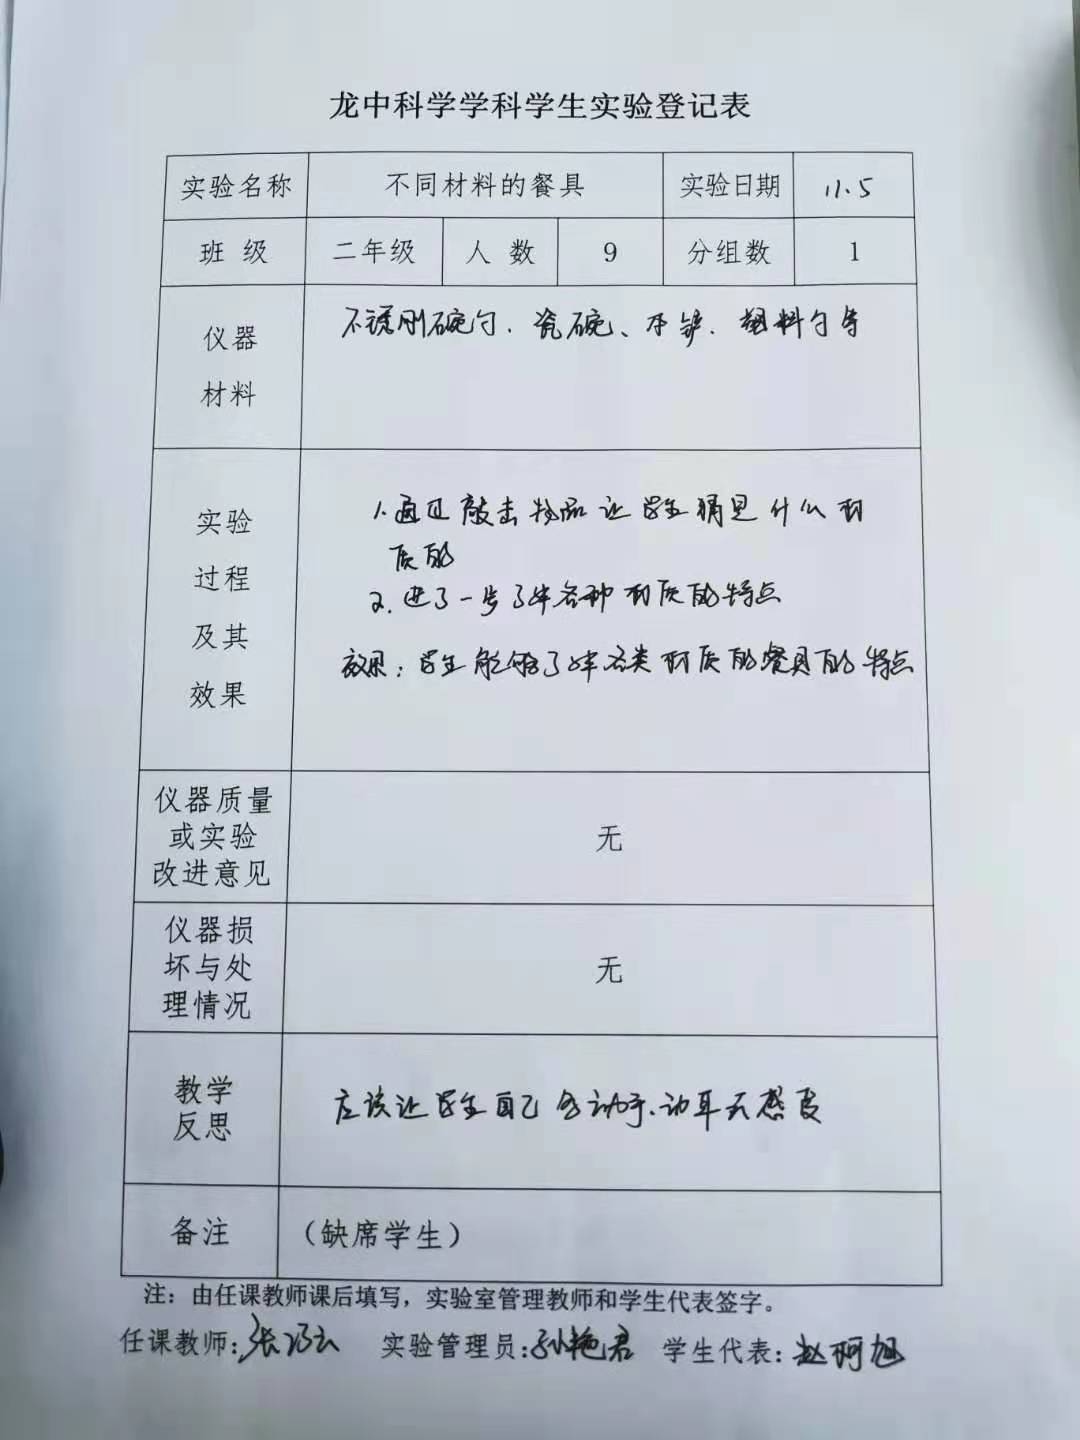 龙中科学学科学生实验登记表
实验名称 不同材料的餐具 实验日期 11.5
班 级 二年级 人 数 9 分组数 1
仪器
材料
不锈刚碗勺、瓷碗、木铲、塑料勺等
实验
过程
及其
效果
1.通过敲击物品让学生猜是什么材
质的
2.进了一步了解各种材质的特点
效果:学生能够了解各类材质的餐具的特点
仪器质量
或实验
改进意见
无
仪器损
坏与处
理情况
无
教学
反思
应该让学生自己去动手、动耳去感受
备注 (缺席学生)
注:由任课教师课后填写,实验室管理教师和学生代表签字。
任课教师:张 实验管理员:孙艳君 学生代表:赵珂旭